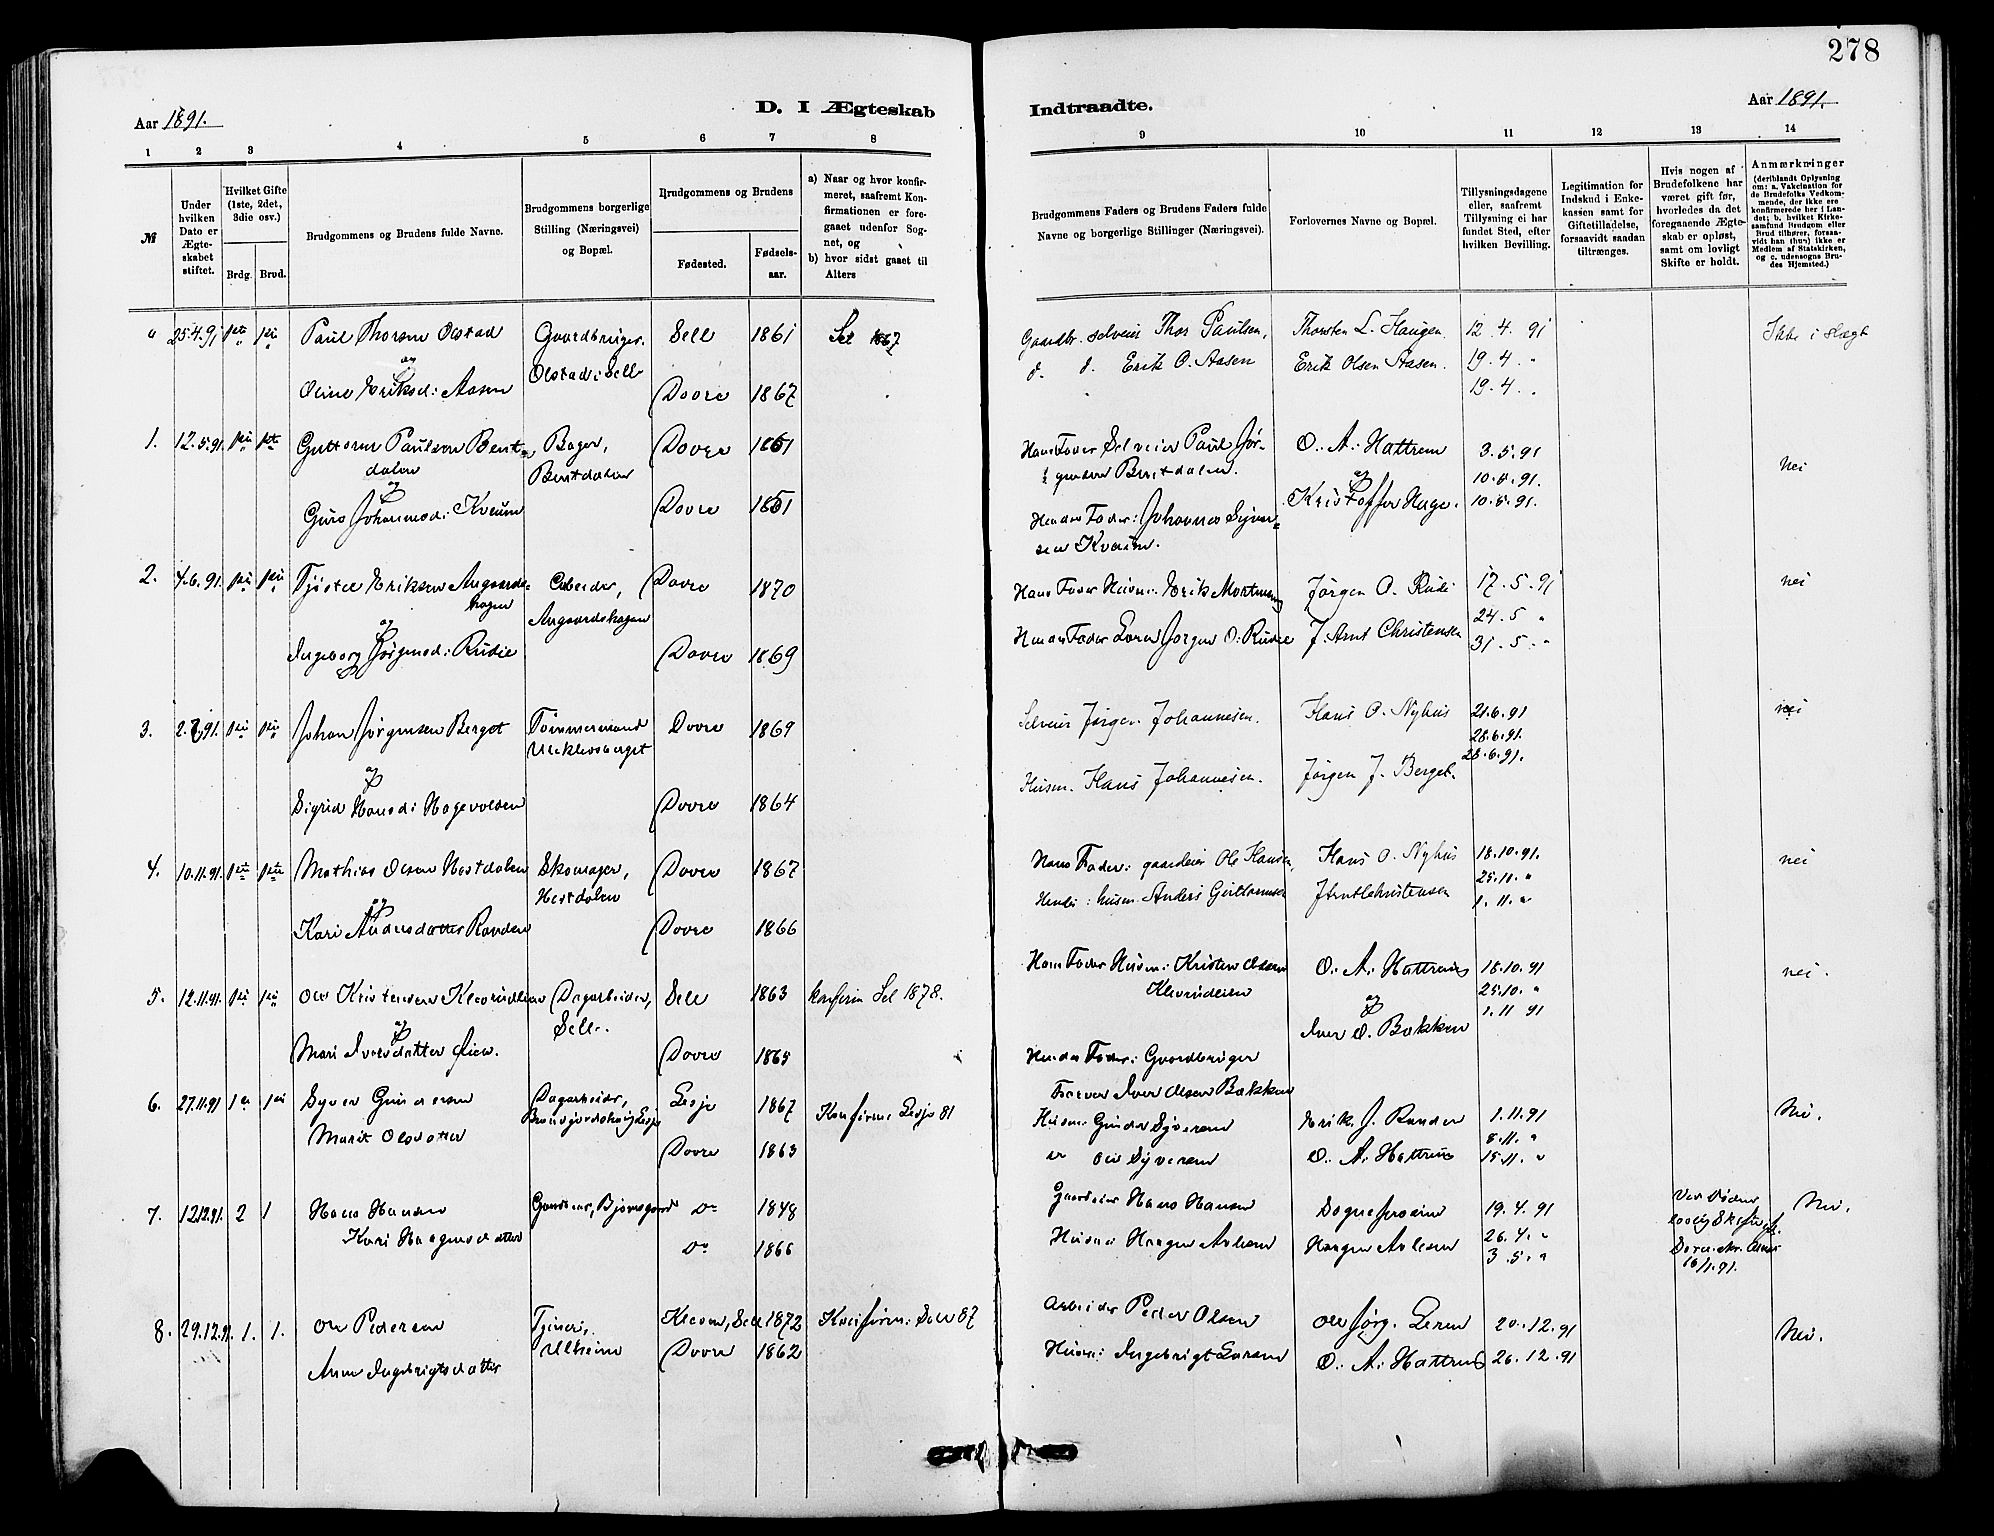 278
Aar 1891.
D. I Ægteskab
Indtraadte.
Aar 1891.
1 2 3 4 5 6 7 8 9 10 11 12 13 14
№
Under hvilken Dato er Ægteskabet stiftet.
Hvilket Gifte (1ste, 2det, 3die osv.)
Brdg. Brud.
Brudgommens og Brudens fulde Navne.
Brudgommens borgerlige Stilling (Næringsvei) og Bopæl.
Brudgommens og Brudens
Fødested. Fødselsaar.
a) Naar og hvor konfirmeret, saafremt Konfirmationen er foregaaet udenfor Sognet, og
b) hvor sidst gaaet til Alters
Brudgommens Faders og Brudens Faders fulde Navne og borgerlige Stillinger (Næringsvei).
Forlovernes Navne og Bopæl.
Tillysningsdagene eller, saafremt Tillysning ei har fundet Sted, efter hvilken Bevilling.
Legitimation for Indskud i Enkekassen samt for Giftetilladelse, forsaavidt saadan tiltrænges.
Hvis nogen af Brudefolkene har været gift før, hvorledes da det foregaaende Ægteskab er opløst, samt om lovligt Skifte er holdt.
Anmærkninger (deriblandt Oplysning om: a. Vakcination for de Brudefolks Vedkommende, der ikke ere konfirmerede her i Landet; b. hvilket Kirkesamfund Brudgom eller Brud tilhører, forsaavidt han (hun) ikke er Medlem af Statskirken, og c. udensogns Brudes Hjemsted.)
" 25.4.91 Paul Thorsen Olstad Gaardbruger Sell 1861 Sel 1867 Gaardbr. selveier Thor Paulsen, Thorsten L. Haugen 12.4.91 Ikke i Slægt
og Olstad i Sell
Oline Eriksd: Aasen Dovre 1867 d. d. Erik O. Aasen Erik Olsen Aasen. 19.4 "
19.4 "
1. 12.5.91. Guttorm Paulsen Bentdalen Bager, Bentdalen Dovre 1861 Hans Fader Selveier Paul Jørgensen Bentdalen. O. A: Hattrem 3.5.91 nei
og og 10.5.91.
Guro Johannesd: Kveum Dovre 1861 Hendes Fader: Johannes Syversen Kveum. Kristoffer Hage. 10.5.91.
2. 4.6.91. Tjøstel Eriksen Angaardshagen Arbeider, Angaardshagen Dovre 1870 Hans Fader Husm: Erik Mortensen Jørgen O. Rudi 17.5.91 nei
og 24.5 "
Ingeborg Jørgensd: Rudie Dovre 1869 Hendes Fader Jørgen O: Rudie J. Arnt Christensen 31.5. "
3. 2.7.91. Johan Jørgensen Berget Tømmermand Dovre 1869 Selveier Jørgen Johannesen. Hans O. Nyhus 21.6.91 nei
og 28.6.91.
28.6.91.
Sigrid Hansd: Hagevolden Dovre 1864 Husm. Hans Johannesen. Jørgen J. Berget.
4. 10.11.91. Mathias Olsen Hestdalen Skomager, Hestdalen Dovre 1867 Hans Fader: gaardeier Ole Hansen, Hans O. Nyhus 18.10.91. nei
og 25.10. "
Kari Andersdatter Randen Dovre 1866 Hendes: husm. Anders Guttormsen J Arnt Christensen 1.11. "
5. 12.11.91. Ole Kristensen Klevrudlien Dagarbeider, Sell. Sell 1863 konfirm Sel 1878. Hans Fader Husm: Kristen Olsen O. A: Hattrem 18.10.91 nei.
og og 25.10. "
Mari Iversdatter Dovre 1865 Hendes Fader: Gaardbruger Iver O. Bakken 1.11 91
Iver Olsen Bakken
6. 27.11.91 Syver Gundersen Dagarbeider, Lesje 1867 Konfirm: Lesje 81 Husm: Gunder Syversen Erik J. Randen 1.11.91 Nei.
8.11. "
Marit Olsdatter Dovre 1863 Ole Syversen O. A: Hattrem 15.11. "
7. 12.12.91. 2 1 Hans Hansen Gaardeier, Bjørnsgaard Do 1848 Gaardeier Hans Hansen 19.4.91 Ved Døden Nei.
Kari Haagensdatter Do 1866 Husm: Haagen Haagen 26.4. "
3.5. " 16/1.91.
8. 29.12.91. 1. 1. Ole Pedersen Tjener, Ulheim Kleven, Sell 1872 Konfirm: Sell 87 Arbeider Peder Olsen Ole Jørg. Leren 20.12.91 Nei.
Anne Ingebrigtsdatter Dovre 1862 Husm: Ingebrigt Larsen O. A: Hattrem 26.12.91